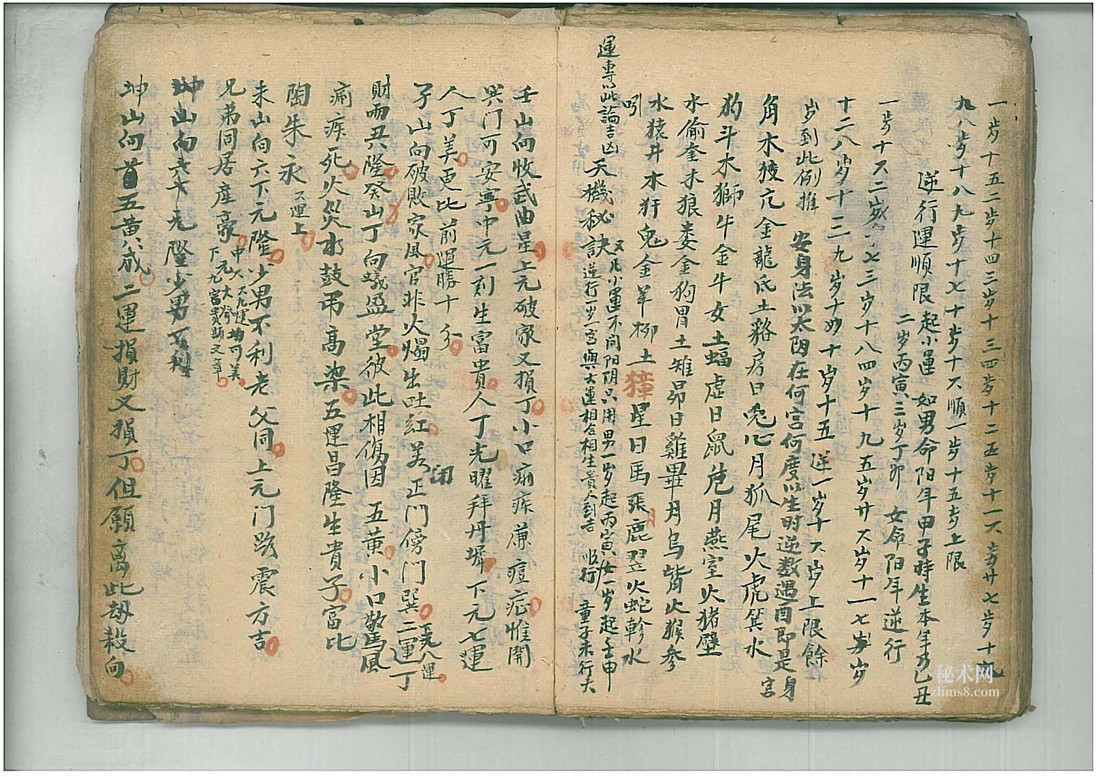 一步十五二步十四三岁十三四步十二五步十一六步廿七步十九
九八步十八九步十七十步十六順一步十五步上限
逆行運順限起小運如男命阳年甲子時生本年為乙丑
二岁丙寅三岁丁卯 女命阳年逆行
一步十六二岁十七三岁十八四岁十九五岁廿六岁十一七岁
十二八岁十三九岁十四十岁十五逆一岁十六岁上限餘
岁到此例推 安身法以太阴在何宫何度以生时逆数遇酉即是身宫
角木狡亢金龍氐土貉房日兔心月狐尾火虎箕水
豹斗水獅牛金牛女土蝠虛日鼠危月燕室火猪壁
水偷奎木狼娄金狗胃土雉昴日雞畢月乌觜火猴参
水猿井木犴鬼金羊柳土獐星日馬張鹿翌火蛇軫水
蚓 天機秘訣 又凡小運不问阳阴只用男一岁起丙寅女一岁起壬申
逆行一步一宫與大運相合相生貴人到吉 順行 童子未行大
運專以此論吉凶
壬山向收武曲星上元破家又損丁小口痲疾蔴痘症惟開
巽门可安寧中元一刻生富貴人丁光曜拜丹墀下元七運
人丁美更比前運勝十分
子山向破敗家風官非火燭出吐紅若闭正门傍门巽二運丁
元八運
財而丑隆癸山丁向蟻盈堂彼此相傷因五黄小口驚風
痲疾死火災水鼓吊高梁五運昌隆生貴子富比
陶朱永
六運上
未山向六下元隆少男不利老父同上元门路震方吉
兄弟同居産豪
下元九宫貴顕文章
坤山向六六元隆少男不利
坤山向首五黄藏二運損財又損丁但願离此劫殺向
秘术网
zhms8.com